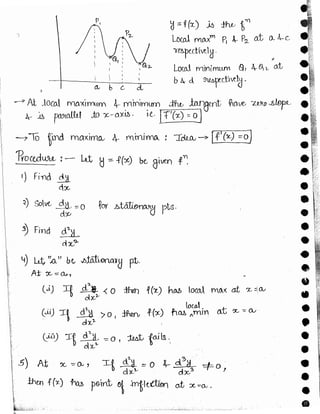 P₁
P₂
Q₁
Q₂
a b c d
y = f(x) is the fⁿ
Local maxᵐ P₁ & P₂ at a & c
respectively.
Local minimum Q₁ & Q₂ at
b & d respectively.
→ At local maximum & minimum the tangent have zero slope
& is parallel to x-axis. ie. f'(x) = 0
→ To find maxima & minima : Idea → f'(x) = 0
Procedure :- Let y = f(x) be given fⁿ.
1) Find dy/dx
2) Solve dy/dx = 0 for stationary pts.
3) Find d²y/dx²
4) Let, "a" be stationary pt.
At x = a,
(i) If d²y/dx² < 0 then f(x) has local max at x = a
(ii) If d²y/dx² > 0, then f(x) has local min at x = a
(iii) If d²y/dx² = 0, test fails.
5) At x = a, If d²y/dx² = 0 & d³y/dx³ ≠ 0,
then f(x) has point of inflection at x = a.